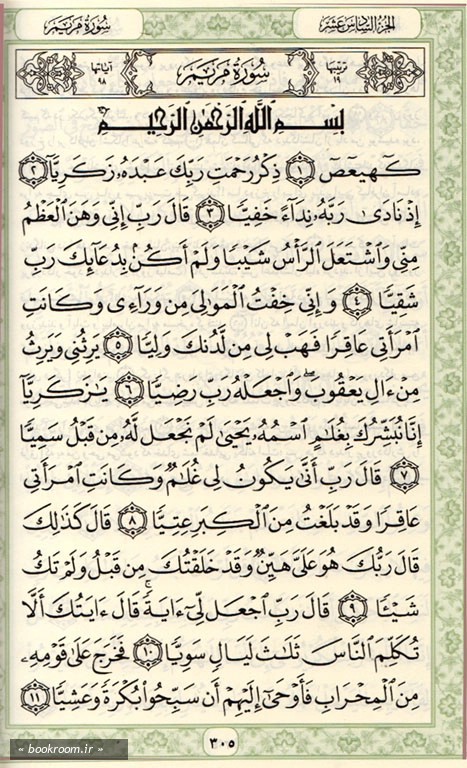 الجزء السادس عشر
سورة مريم
ترتيبها ١٩
سُورَةُ مَرْيَمَ
آياتها ٩٨
بِسْمِ ٱللَّهِ ٱلرَّحْمَٰنِ ٱلرَّحِيمِ
كٓهيعٓصٓ ١ ذِكْرُ رَحْمَتِ رَبِّكَ عَبْدَهُۥ زَكَرِيَّآ ٢
إِذْ نَادَىٰ رَبَّهُۥ نِدَآءً خَفِيًّا ٣ قَالَ رَبِّ إِنِّى وَهَنَ ٱلْعَظْمُ
مِنِّى وَٱشْتَعَلَ ٱلرَّأْسُ شَيْبًا وَلَمْ أَكُنۢ بِدُعَآئِكَ رَبِّ
شَقِيًّا ٤ وَإِنِّى خِفْتُ ٱلْمَوَٰلِىَ مِن وَرَآءِى وَكَانَتِ
ٱمْرَأَتِى عَاقِرًا فَهَبْ لِى مِن لَّدُنكَ وَلِيًّا ٥ يَرِثُنِى وَيَرِثُ
مِنْ ءَالِ يَعْقُوبَ ۖ وَٱجْعَلْهُ رَبِّ رَضِيًّا ٦ يَٰزَكَرِيَّآ
إِنَّا نُبَشِّرُكَ بِغُلَٰمٍ ٱسْمُهُۥ يَحْيَىٰ لَمْ نَجْعَل لَّهُۥ مِن قَبْلُ سَمِيًّا
٧ قَالَ رَبِّ أَنَّىٰ يَكُونُ لِى غُلَٰمٌ وَكَانَتِ ٱمْرَأَتِى
عَاقِرًا وَقَدْ بَلَغْتُ مِنَ ٱلْكِبَرِ عِتِيًّا ٨ قَالَ كَذَٰلِكَ
قَالَ رَبُّكَ هُوَ عَلَىَّ هَيِّنٌ وَقَدْ خَلَقْتُكَ مِن قَبْلُ وَلَمْ تَكُ
شَيْـًٔا ٩ قَالَ رَبِّ ٱجْعَل لِّىٓ ءَايَةً ۚ قَالَ ءَايَتُكَ أَلَّا
تُكَلِّمَ ٱلنَّاسَ ثَلَٰثَ لَيَالٍ سَوِيًّا ١٠ فَخَرَجَ عَلَىٰ قَوْمِهِۦ
مِنَ ٱلْمِحْرَابِ فَأَوْحَىٰٓ إِلَيْهِمْ أَن سَبِّحُوا۟ بُكْرَةً وَعَشِيًّا ١١
٣٠٥
« bookroom.ir »